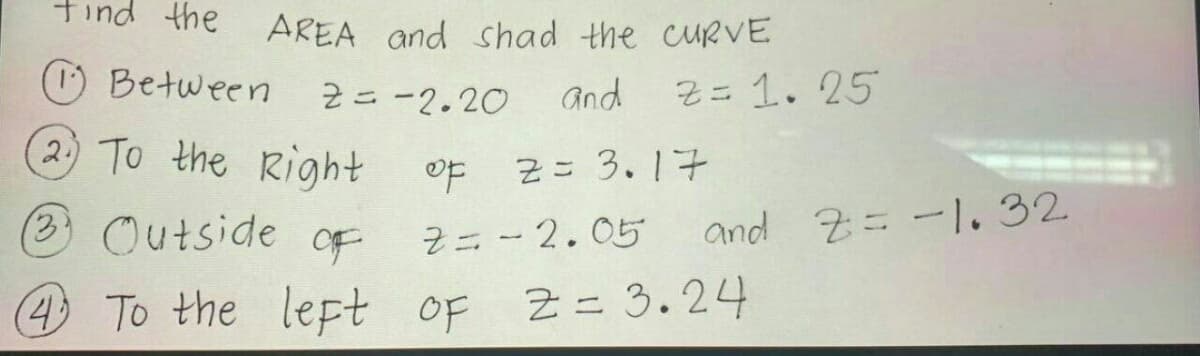 Find the AREA and shad the CURVE
① Between z = -2.20 and z = 1.25
② To the Right OF z = 3.17
③ Outside OF z = -2.05 and z = -1.32
④ To the left OF z = 3.24